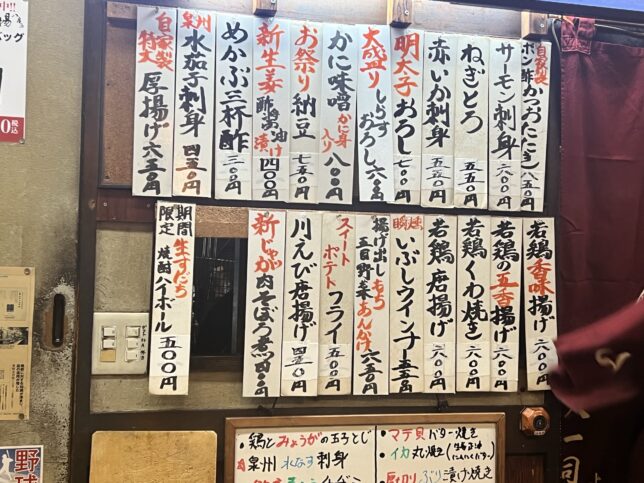 自家製ポン酢かつおたたき八五〇円
サーモン刺身六〇〇円
ねぎとろ五五〇円
赤いか刺身五五〇円
明太子おろし七〇〇円
大盛りしらすおろし六〇〇円
かに味噌かに身入り八〇〇円
お祭り納豆七五〇円
新生姜酢醤油漬け四〇〇円
めかぶ三杯酢三〇〇円
泉州水茄子刺身四五〇円
自家製特大厚揚げ六五〇円
若鶏香味揚げ六〇〇円
若鶏の五香揚げ六〇〇円
若鶏くわ焼き六〇〇円
若鶏唐揚げ六〇〇円
瞬燻いぶしウインナー五五〇円
揚げ出しもち五目野菜あんかけ六五〇円
スイートポテトフライ五〇〇円
川えび唐揚げ四五〇円
新じゃが肉そぼろ煮四〇〇円
期間限定生すだち焼酎ハイボール五〇〇円
・鶏とみょうがの玉子とじ
泉州水なす刺身
・マテ貝バター焼き
・イカ丸焼き
厚切りぶり漬け焼き
野球